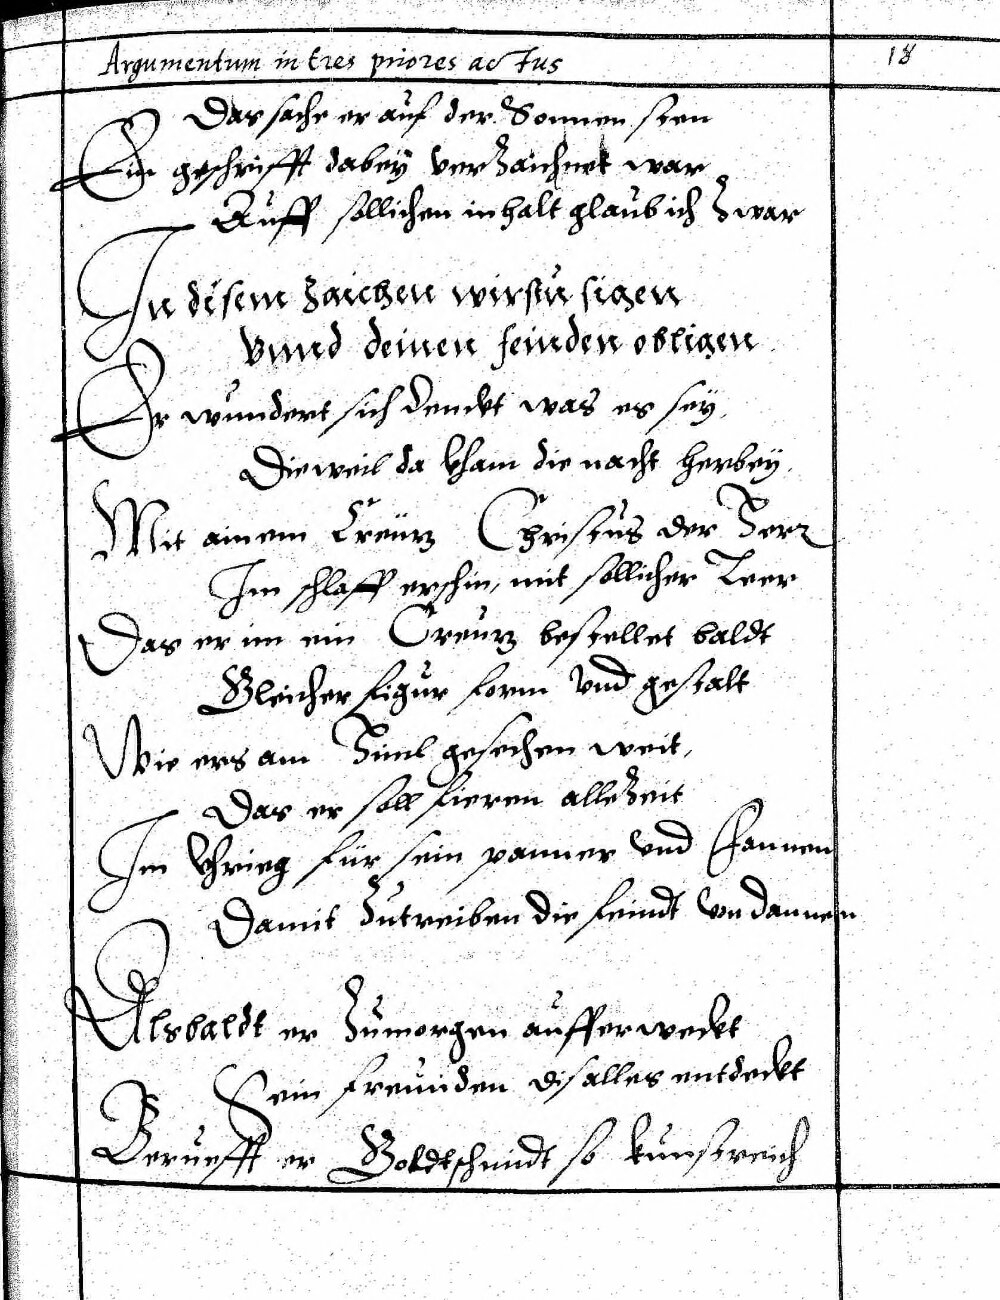 Argumentum in tres priores actus
18
Das sache er auf der Sonnen sten
Ein geschrifft dabey verzaichnet war
Auff sollichen inhalt glaub ich zwar
In disem zaichen wirstu sigen
Vnnd deinen feinden obligen
Er wundert sich denckt was es sey,
Dieweil da kham die nacht herbey.
Mit ainem Creütz Christus der Herr
Im schlaff erschin, mit sollicher Leer
Das er im ein Creutz bestellet baldt
Gleicher figur form vnd gestalt
Wie ers am Himl gesechen weit,
Das er soll fieren allezeit
Im khrieg für sein panner vnd Fannen
Damit zutreiben die feindt von dannen
Alsbaldt er zumorgen aufferweckt
Sein freunden dis alles entdeckt
Beruefft er Goldtschmidt so kunstreich